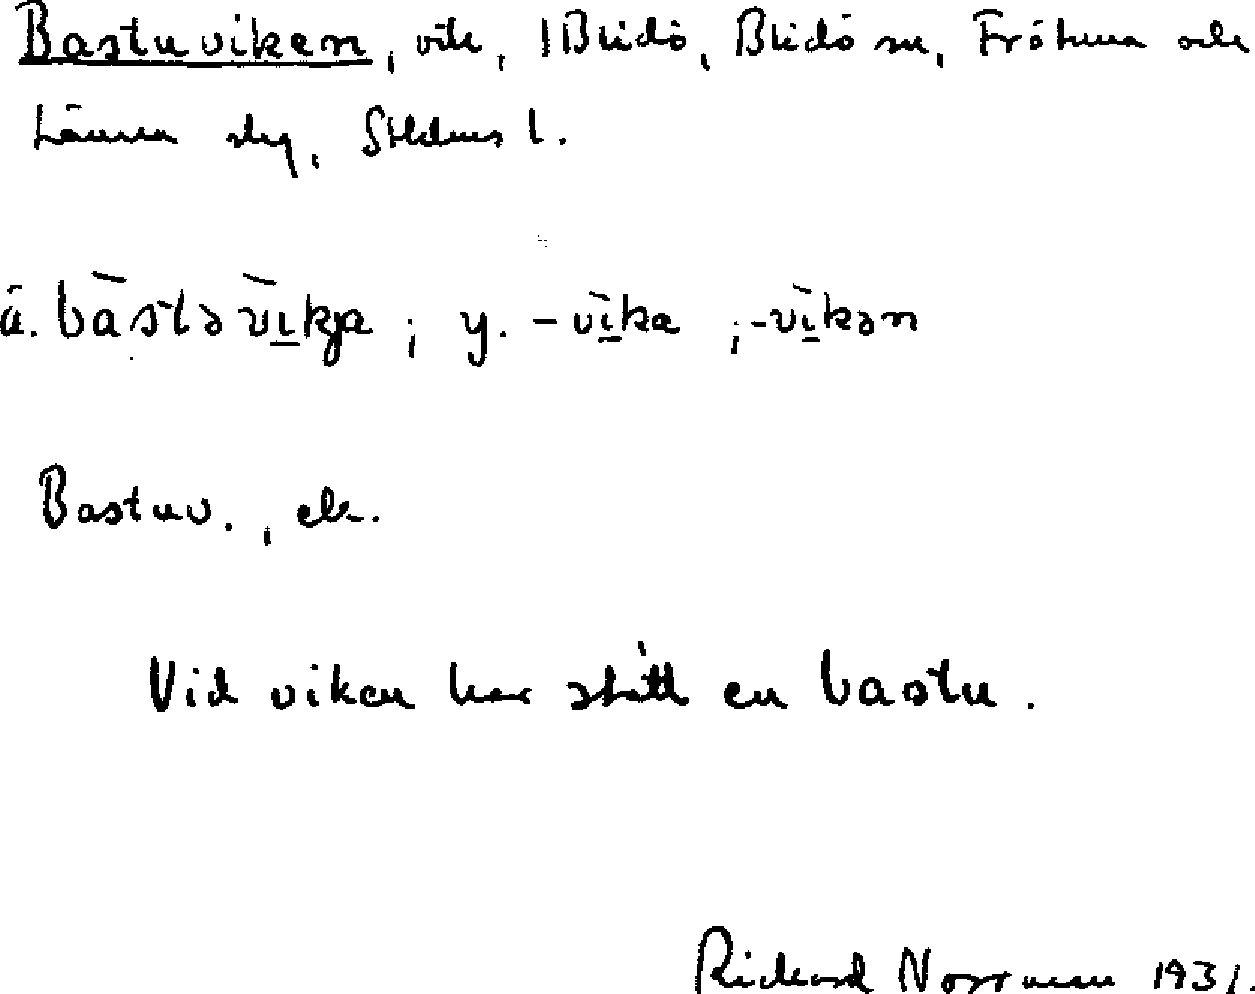 Bastuviken, vik, 1 Blidö, Blidö sn, Frötuna och
Länna skg, Sthlms l.
ä. bàstəvi̲kja ; y. -vi̲ka ; -vi̲kən
Bastuv., ek.
Vid viken har stått en bastu.
Rickard Norrman 1931.